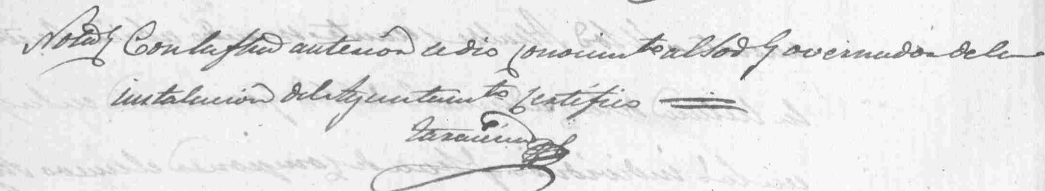 Nota Con la fha anterior se dio conocimto al Sor Governador de la
instalacion del Ayuntamto certifico